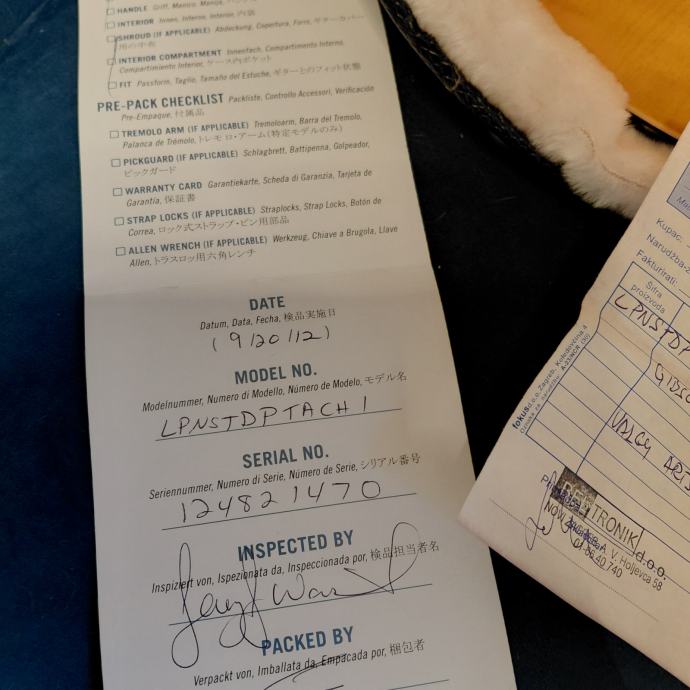 HANDLE Griff, Manico, Manija,
INTERIOR Innen, Interno, Interior, 内装
SHROUD (IF APPLICABLE) Abdeckung, Copertura, Forro, ギターカバー
用の中布
INTERIOR COMPARTMENT Innenfach, Compartimento Interno,
Compartimiento Interior, ケース内ポケット
FIT Passform, Taglio, Tamaño del Estuche, ギターとのフィット状態
PRE-PACK CHECKLIST Packliste, Controllo Accessori, Verificación
Pre-Empaque, 付属品
TREMOLO ARM (IF APPLICABLE) Tremoloarm, Barra del Tremolo,
Palanca de Trémolo, トレモロ・アーム(特定モデルのみ)
PICKGUARD (IF APPLICABLE) Schlagbrett, Battipenna, Golpeador,
ピックガード
WARRANTY CARD Garantiekarte, Scheda di Garanzia, Tarjeta de
Garantía, 保証書
STRAP LOCKS (IF APPLICABLE) Straplocks, Strap Locks, Botón de
Correa, ロック式ストラップ・ピン用部品
ALLEN WRENCH (IF APPLICABLE) Werkzeug, Chiave a Brugola, Llave
Allen, トラスロッド用六角レンチ
DATE
Datum, Data, Fecha, 検品実施日
(9/20/12)
MODEL NO.
Modelnummer, Numero di Modello, Número de Modelo, モデル名
LPNSTDPTACH1
SERIAL NO.
Seriennummer, Numero di Serie, Número de Serie, シリアル番号
124821470
INSPECTED BY
Inspiziert von, Ispezionata da, Inspeccionada por, 検品担当者名
PACKED BY
Verpackt von, Imballata da, Empacada por, 梱包者
Kupac:
Narudžba-
Fakturirati:
Šifra
proizvoda
LPNSTDP
fokus d.o.o. Zagreb, Koledovčina 4
Oznaka za narudžbu: A-33/NCR
TRONIK d.o.o.
NOVI ZAGREB, A. V. Holjevca 58